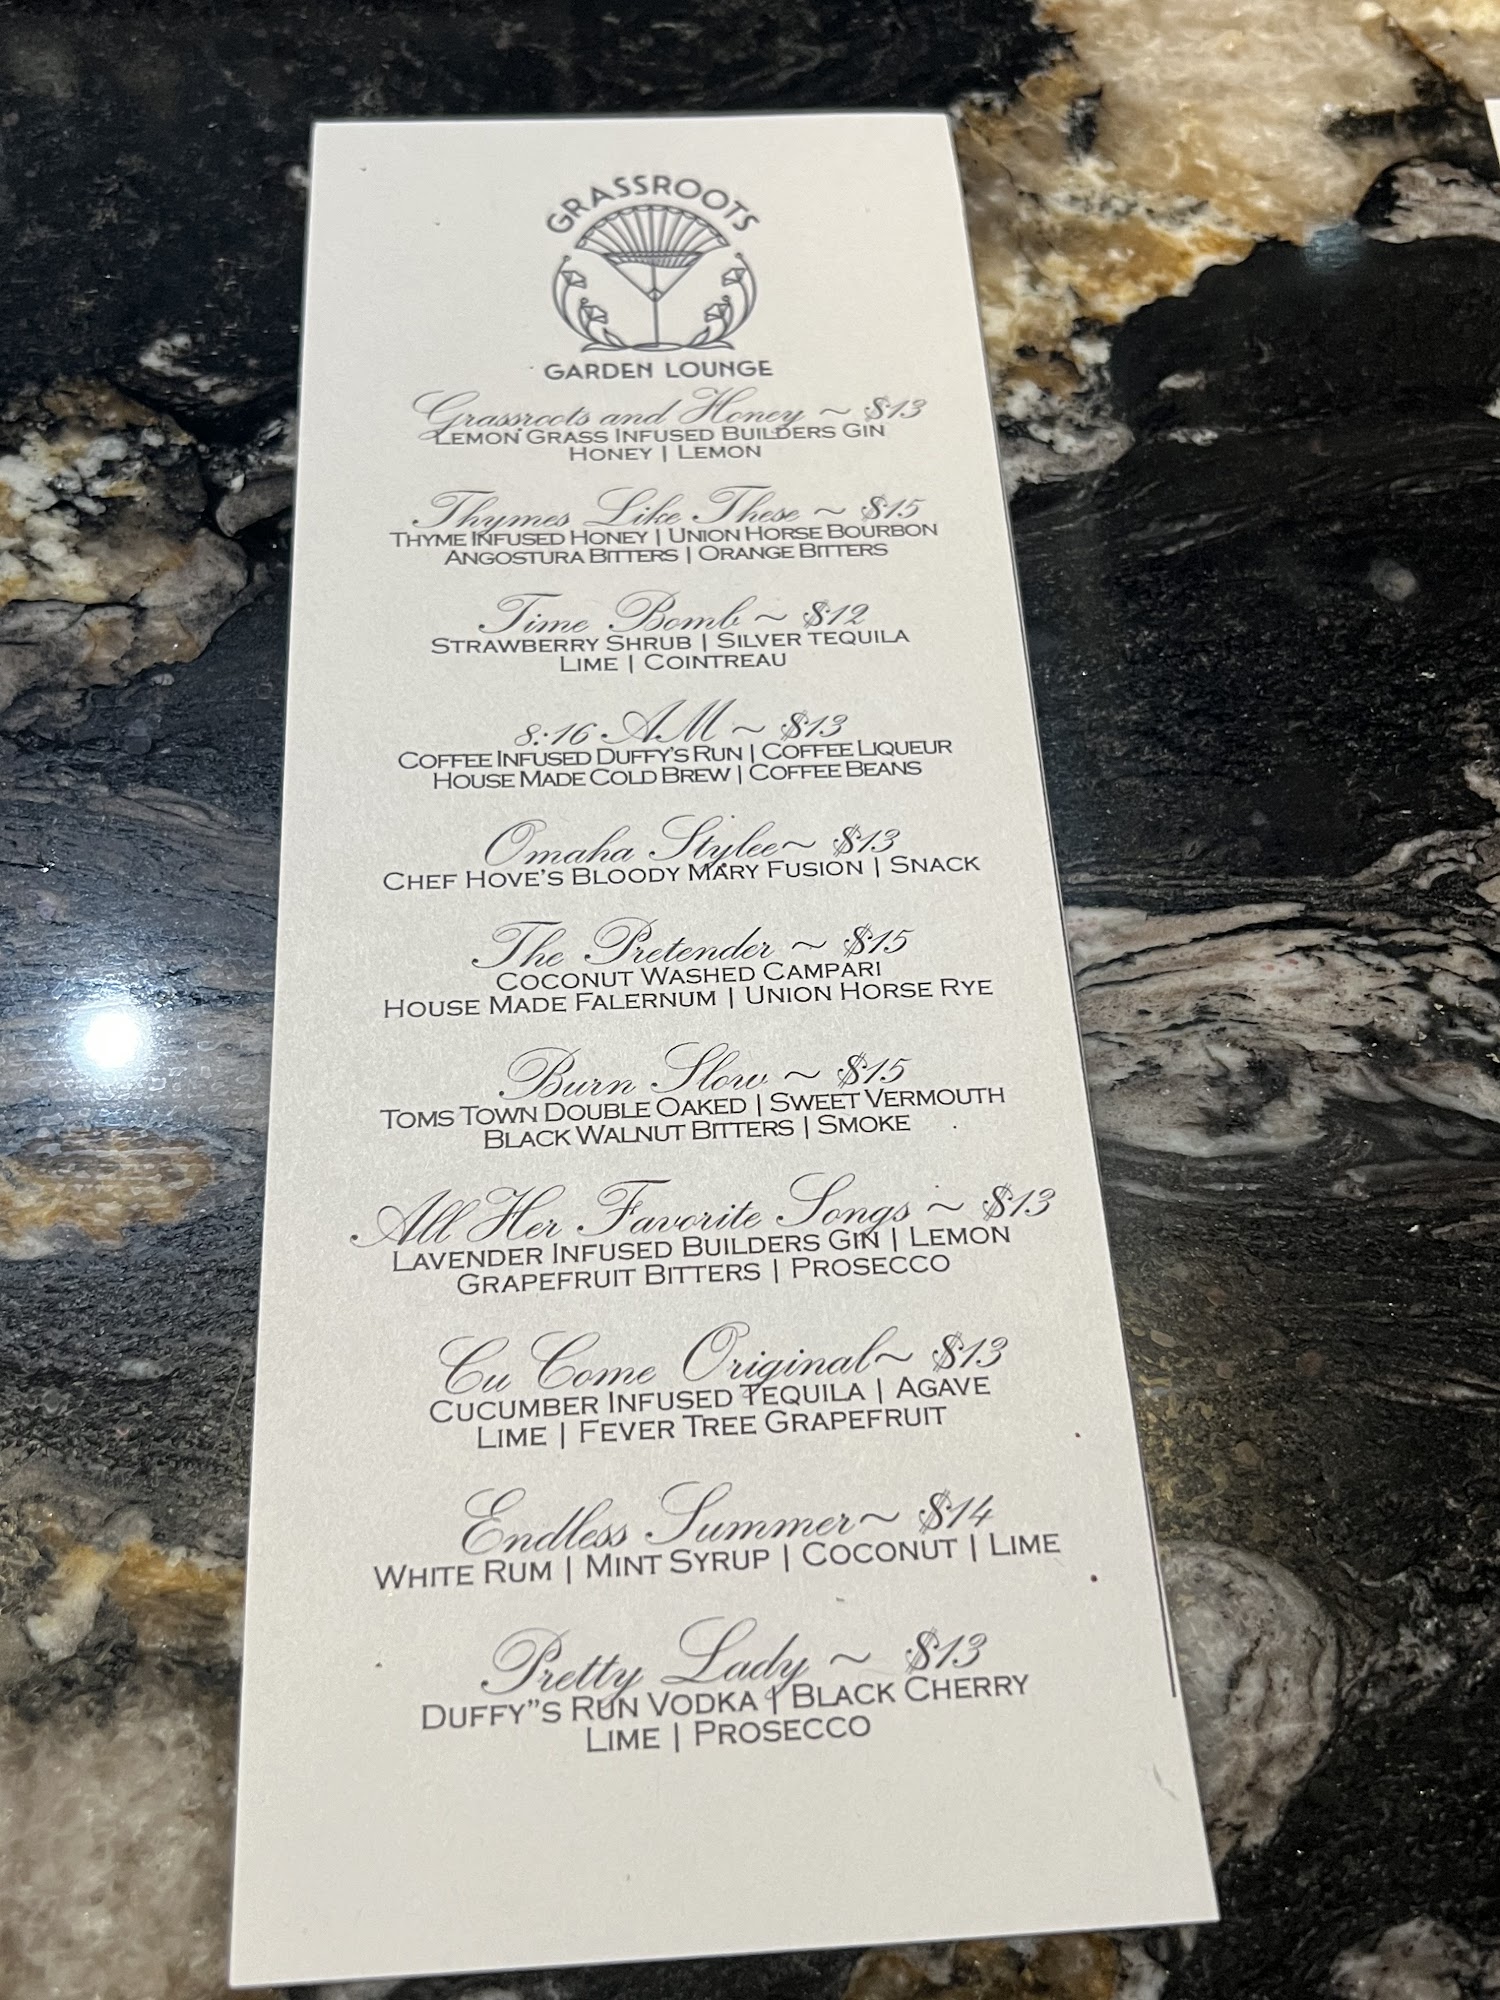 GRASSROOTS
GARDEN LOUNGE
Grassroots and Honey ~ $13
LEMON GRASS INFUSED BUILDERS GIN
HONEY | LEMON
Thymes Like These ~ $15
THYME INFUSED HONEY | UNION HORSE BOURBON
ANGOSTURA BITTERS | ORANGE BITTERS
Time Bomb ~ $12
STRAWBERRY SHRUB | SILVER TEQUILA
LIME | COINTREAU
8:16 AM ~ $13
COFFEE INFUSED DUFFY'S RUN | COFFEE LIQUEUR
HOUSE MADE COLD BREW | COFFEE BEANS
Omaha Stylee~ $13
CHEF HOVE'S BLOODY MARY FUSION | SNACK
The Pretender ~ $15
COCONUT WASHED CAMPARI
HOUSE MADE FALERNUM | UNION HORSE RYE
Burn Slow ~ $15
TOMS TOWN DOUBLE OAKED | SWEET VERMOUTH
BLACK WALNUT BITTERS | SMOKE
All Her Favorite Songs ~ $13
LAVENDER INFUSED BUILDERS GIN | LEMON
GRAPEFRUIT BITTERS | PROSECCO
Cu Come Original~ $13
CUCUMBER INFUSED TEQUILA | AGAVE
LIME | FEVER TREE GRAPEFRUIT
Endless Summer~ $14
WHITE RUM | MINT SYRUP | COCONUT | LIME
Pretty Lady ~ $13
DUFFY"S RUN VODKA | BLACK CHERRY
LIME | PROSECCO